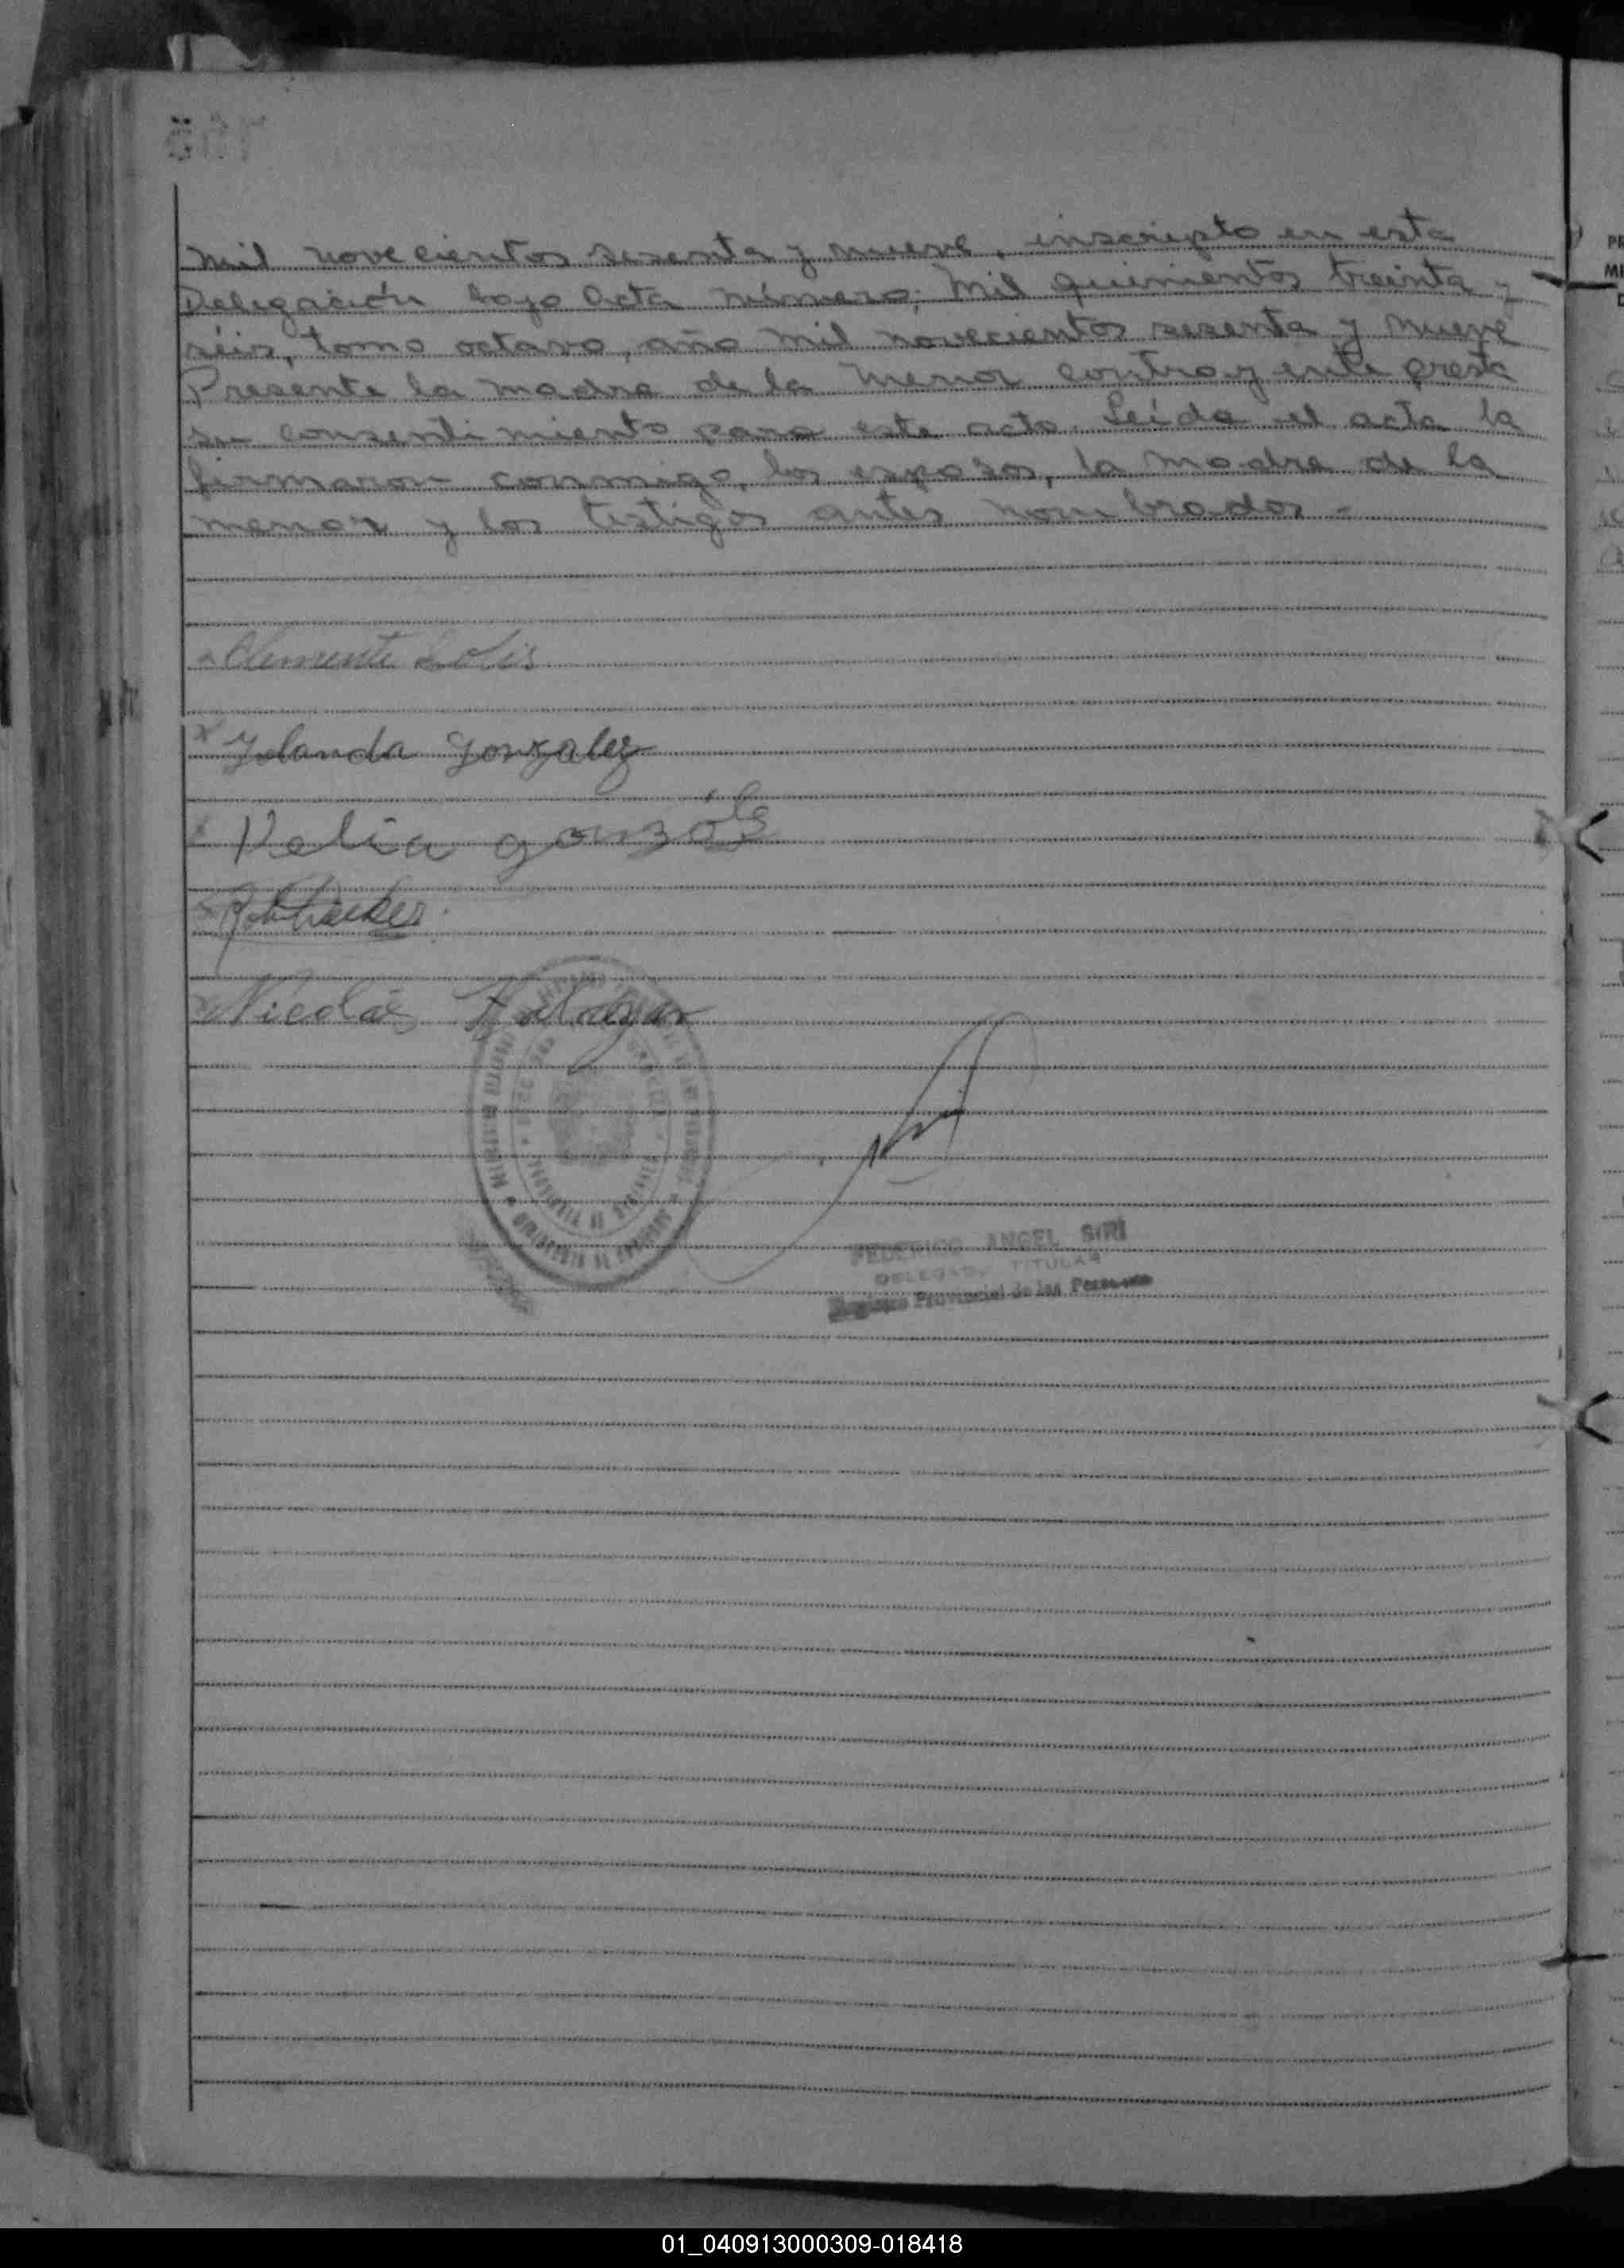 mil novecientos sesenta y nueve, inscripto en esta
Delegación bajo Acta número; Mil quinientos treinta y
séis, tomo octavo, año mil novecientos sesenta y nueve
Presente la madre de la menor contrayente presta
su consentimiento para este acto. Leída el acta la
firmaron conmigo, los esposos, la madre de la
menor y los testigos antes nombrados -
Clemente Solis
Yolanda Gonzalez
Nicolás
FEDERICO ANGEL SIRI
DELEGADO TITULAR
Registro Provincial de las Personas
01_040913000309-018418